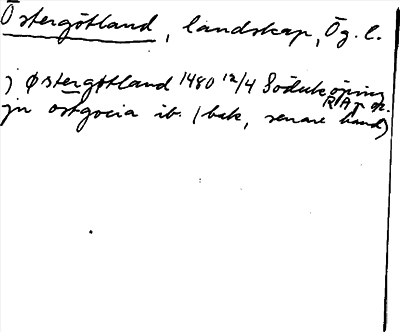 Östergötland, landskap, Ög. l.
j østergøtland 1480 12/4 Söderköping RAp or.
jn ostgocia ib. (bak, senare hand)